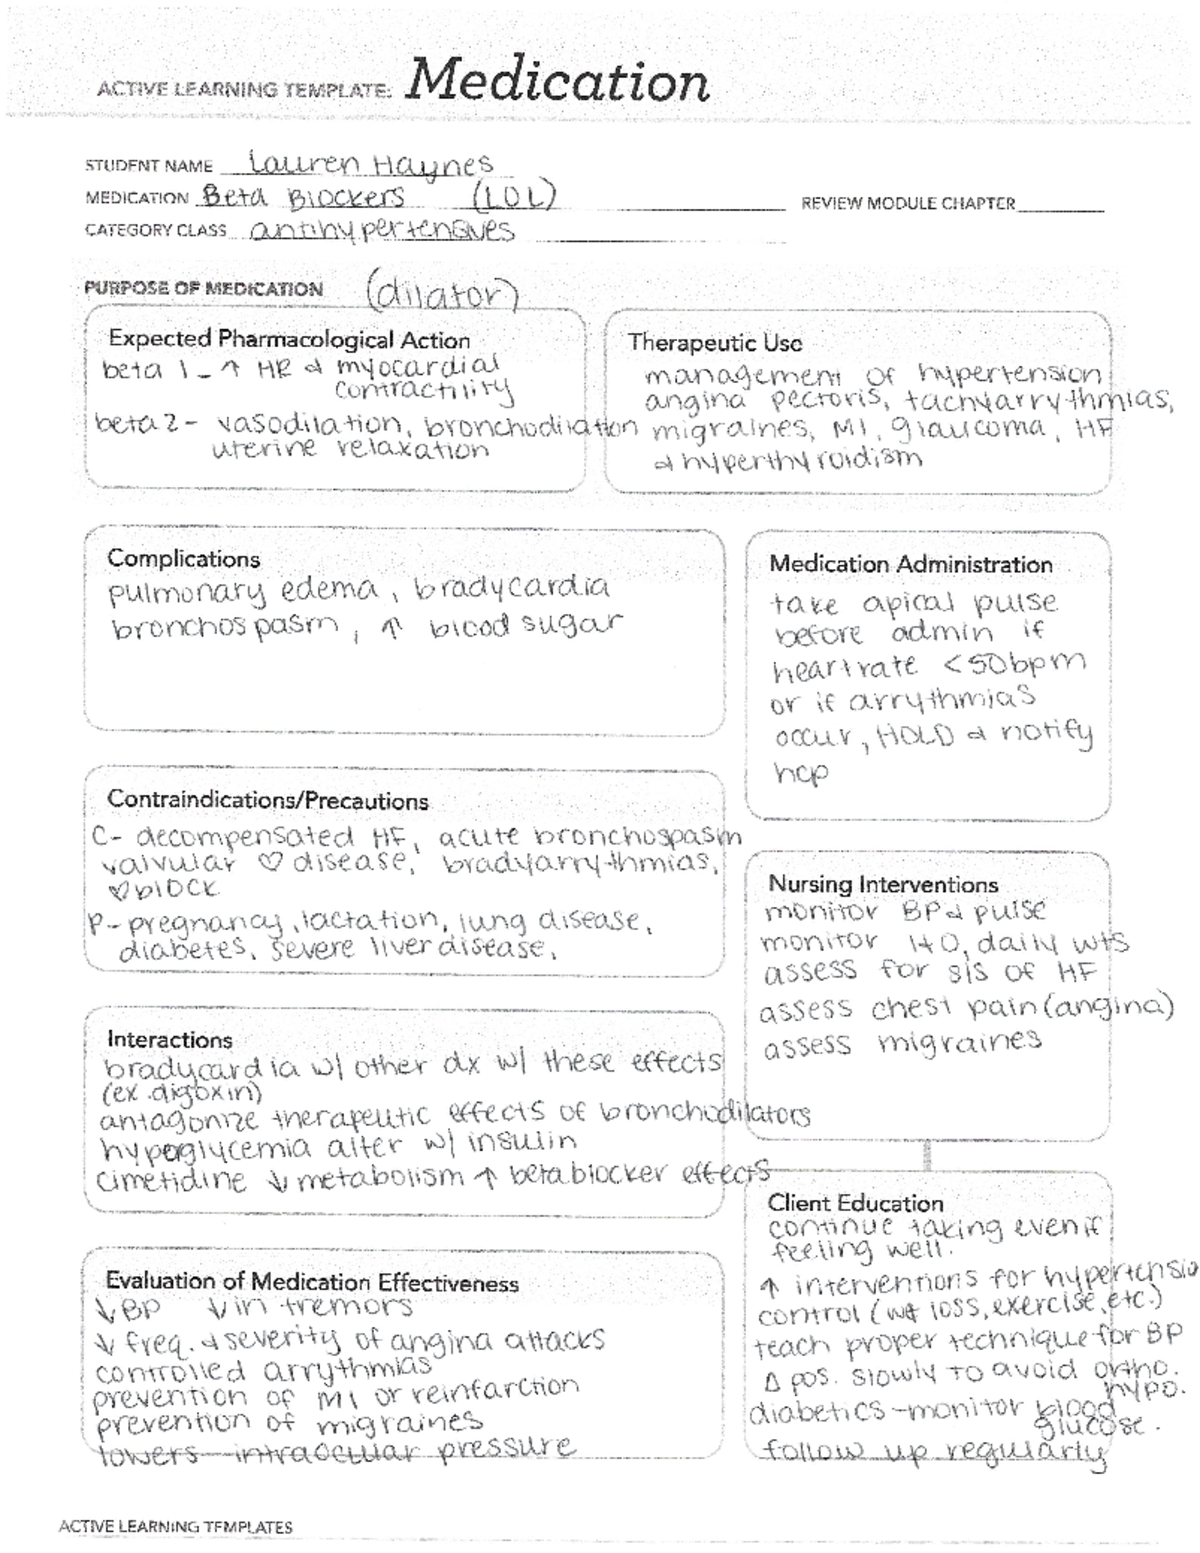 ACTIVE LEARNING TEMPLATE: Medication
STUDENT NAME Lauren Haynes
MEDICATION Beta Blockers (LOL)
REVIEW MODULE CHAPTER
CATEGORY CLASS antihypertensives
PURPOSE OF MEDICATION (dilator)
Expected Pharmacological Action
beta 1 - ↑ HR & myocardial
contractility
beta 2 - vasodilation, bronchodilation
uterine relaxation
Therapeutic Use
management of hypertension
angina pectoris, tachyarrythmias,
migraines, MI, glaucoma, HF
& hyperthyroidism
Complications
pulmonary edema, bradycardia
bronchospasm, ↑ blood sugar
Medication Administration
take apical pulse
before admin if
heartrate <50bpm
or if arrythmias
occur, HOLD & notify
hcp
Contraindications/Precautions
C- decompensated HF, acute bronchospasm
valvular ♡ disease, bradyarrythmias,
♡block
P- pregnancy, lactation, lung disease,
diabetes, severe liver disease,
Nursing Interventions
monitor BP & pulse
monitor I+O, daily wts
assess for s/s of HF
assess chest pain (angina)
assess migraines
Interactions
bradycardia w/ other dx w/ these effects
(ex. digoxin)
antagonize therapeutic effects of bronchodilators
hypoglycemia alter w/ insulin
cimetidine ↓ metabolism ↑ betablocker effects
Client Education
continue taking even if
feeling well.
↑ interventions for hypertensio
control (wt loss, exercise, etc.)
teach proper technique for BP
Δ pos. slowly to avoid ortho.
hypo.
diabetics - monitor blood
glucose.
follow up regularly
Evaluation of Medication Effectiveness
↓ BP ↓ in tremors
↓ freq. & severity of angina attacks
controlled arrythmias
prevention of MI or reinfarction
prevention of migraines
lowers intraocular pressure
ACTIVE LEARNING TEMPLATES